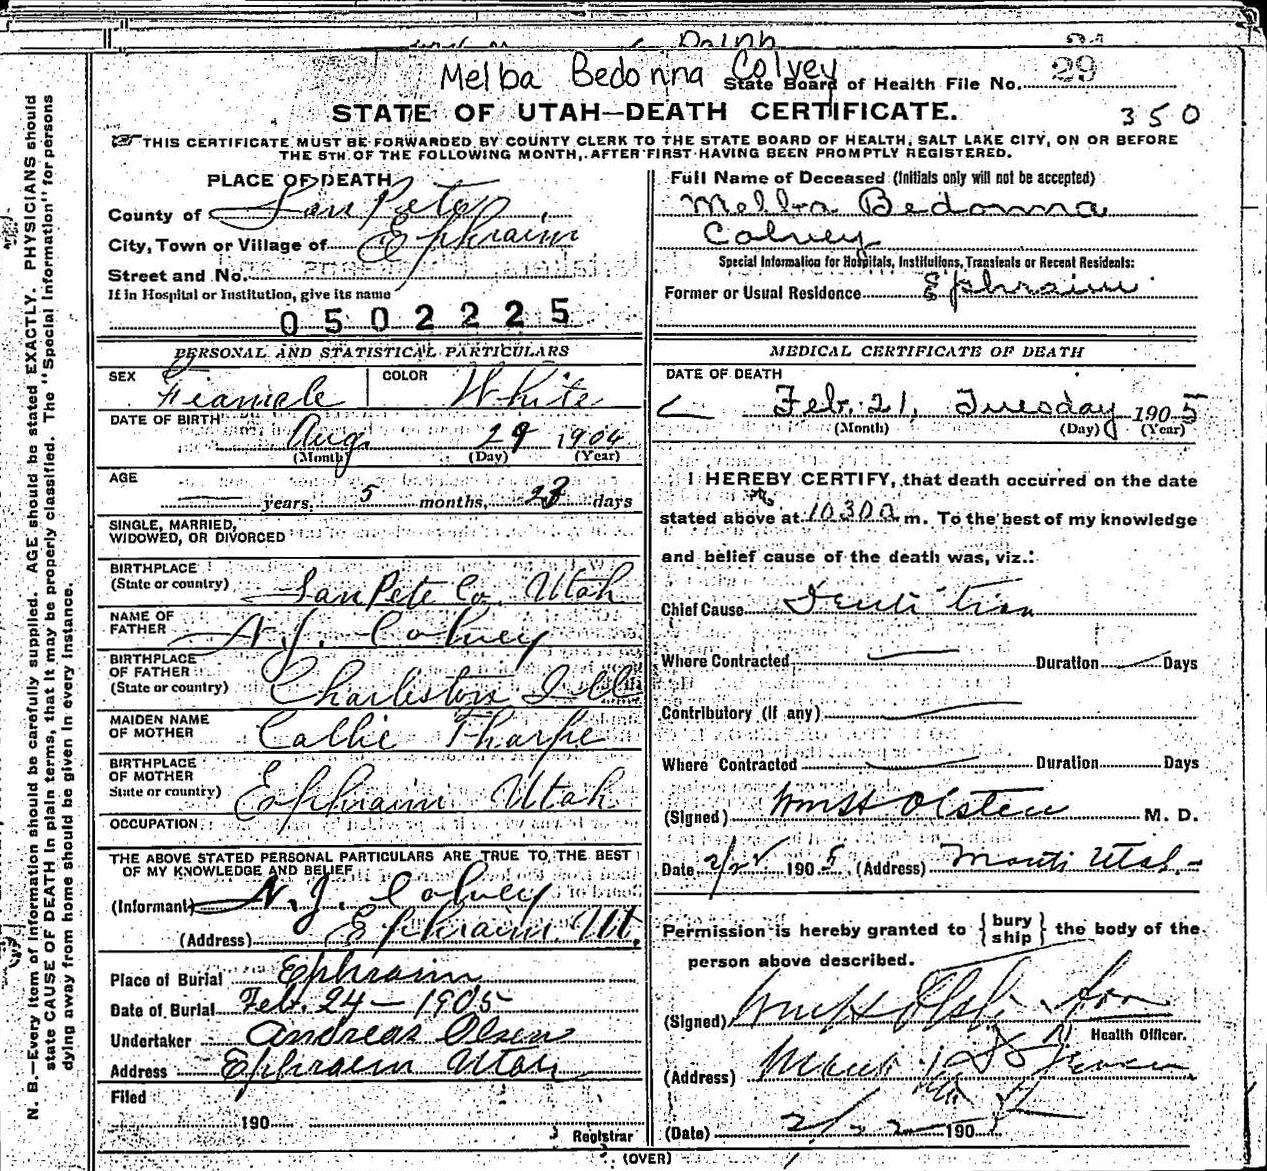 Melba Bedonna Colvey
State Board of Health File No. 29
STATE OF UTAH—DEATH CERTIFICATE.
350
☞ THIS CERTIFICATE MUST BE FORWARDED BY COUNTY CLERK TO THE STATE BOARD OF HEALTH, SALT LAKE CITY, ON OR BEFORE
THE 5TH OF THE FOLLOWING MONTH, AFTER FIRST HAVING BEEN PROMPTLY REGISTERED.
N. B.—Every item of information should be carefully supplied. AGE should be stated EXACTLY. PHYSICIANS should
state CAUSE OF DEATH in plain terms, that it may be properly classified. The "Special Information" for persons
dying away from home should be given in every instance.
PLACE OF DEATH
County of San Pete
City, Town or Village of Ephraim
Street and No.
If in Hospital or Institution, give its name
0502225
PERSONAL AND STATISTICAL PARTICULARS
SEX Female COLOR White
DATE OF BIRTH Aug. 29 1904
(Month) (Day) (Year)
AGE — years, 5 months, 23 days
SINGLE, MARRIED,
WIDOWED, OR DIVORCED
BIRTHPLACE
(State or country) San Pete Co. Utah
NAME OF
FATHER N. J. Colvey
BIRTHPLACE
OF FATHER
(State or country) Charleston Ill
MAIDEN NAME
OF MOTHER Callie Tharpe
BIRTHPLACE
OF MOTHER
State or country) Ephraim Utah
OCCUPATION
THE ABOVE STATED PERSONAL PARTICULARS ARE TRUE TO THE BEST
OF MY KNOWLEDGE AND BELIEF
(Informant) N. J. Colvey
(Address) Ephraim Ut.
Place of Burial Ephraim
Date of Burial Feb. 24 — 1905
Undertaker Andreas Olsen
Address Ephraim Utah
Filed
190
Registrar
Full Name of Deceased (Initials only will not be accepted)
Melba Bedonna
Colvey
Special Information for Hospitals, Institutions, Transients or Recent Residents:
Former or Usual Residence Ephraim
MEDICAL CERTIFICATE OF DEATH
DATE OF DEATH
Feb. 21, Tuesday 1905
(Month) (Day) (Year)
I HEREBY CERTIFY, that death occurred on the date
stated above at 1030 a m. To the best of my knowledge
and belief cause of the death was, viz.:
Chief Cause Dentition
Where Contracted — Duration — Days
Contributory (if any) —
Where Contracted — Duration Days
(Signed) Wm H Olsten M. D.
Date 2/22 1905 (Address) Manti Utah.
Permission is hereby granted to { bury ship } the body of the
person above described.
(Signed) Wm H
Health Officer.
(Address) Manti
(Date) 2/22 190
(OVER)